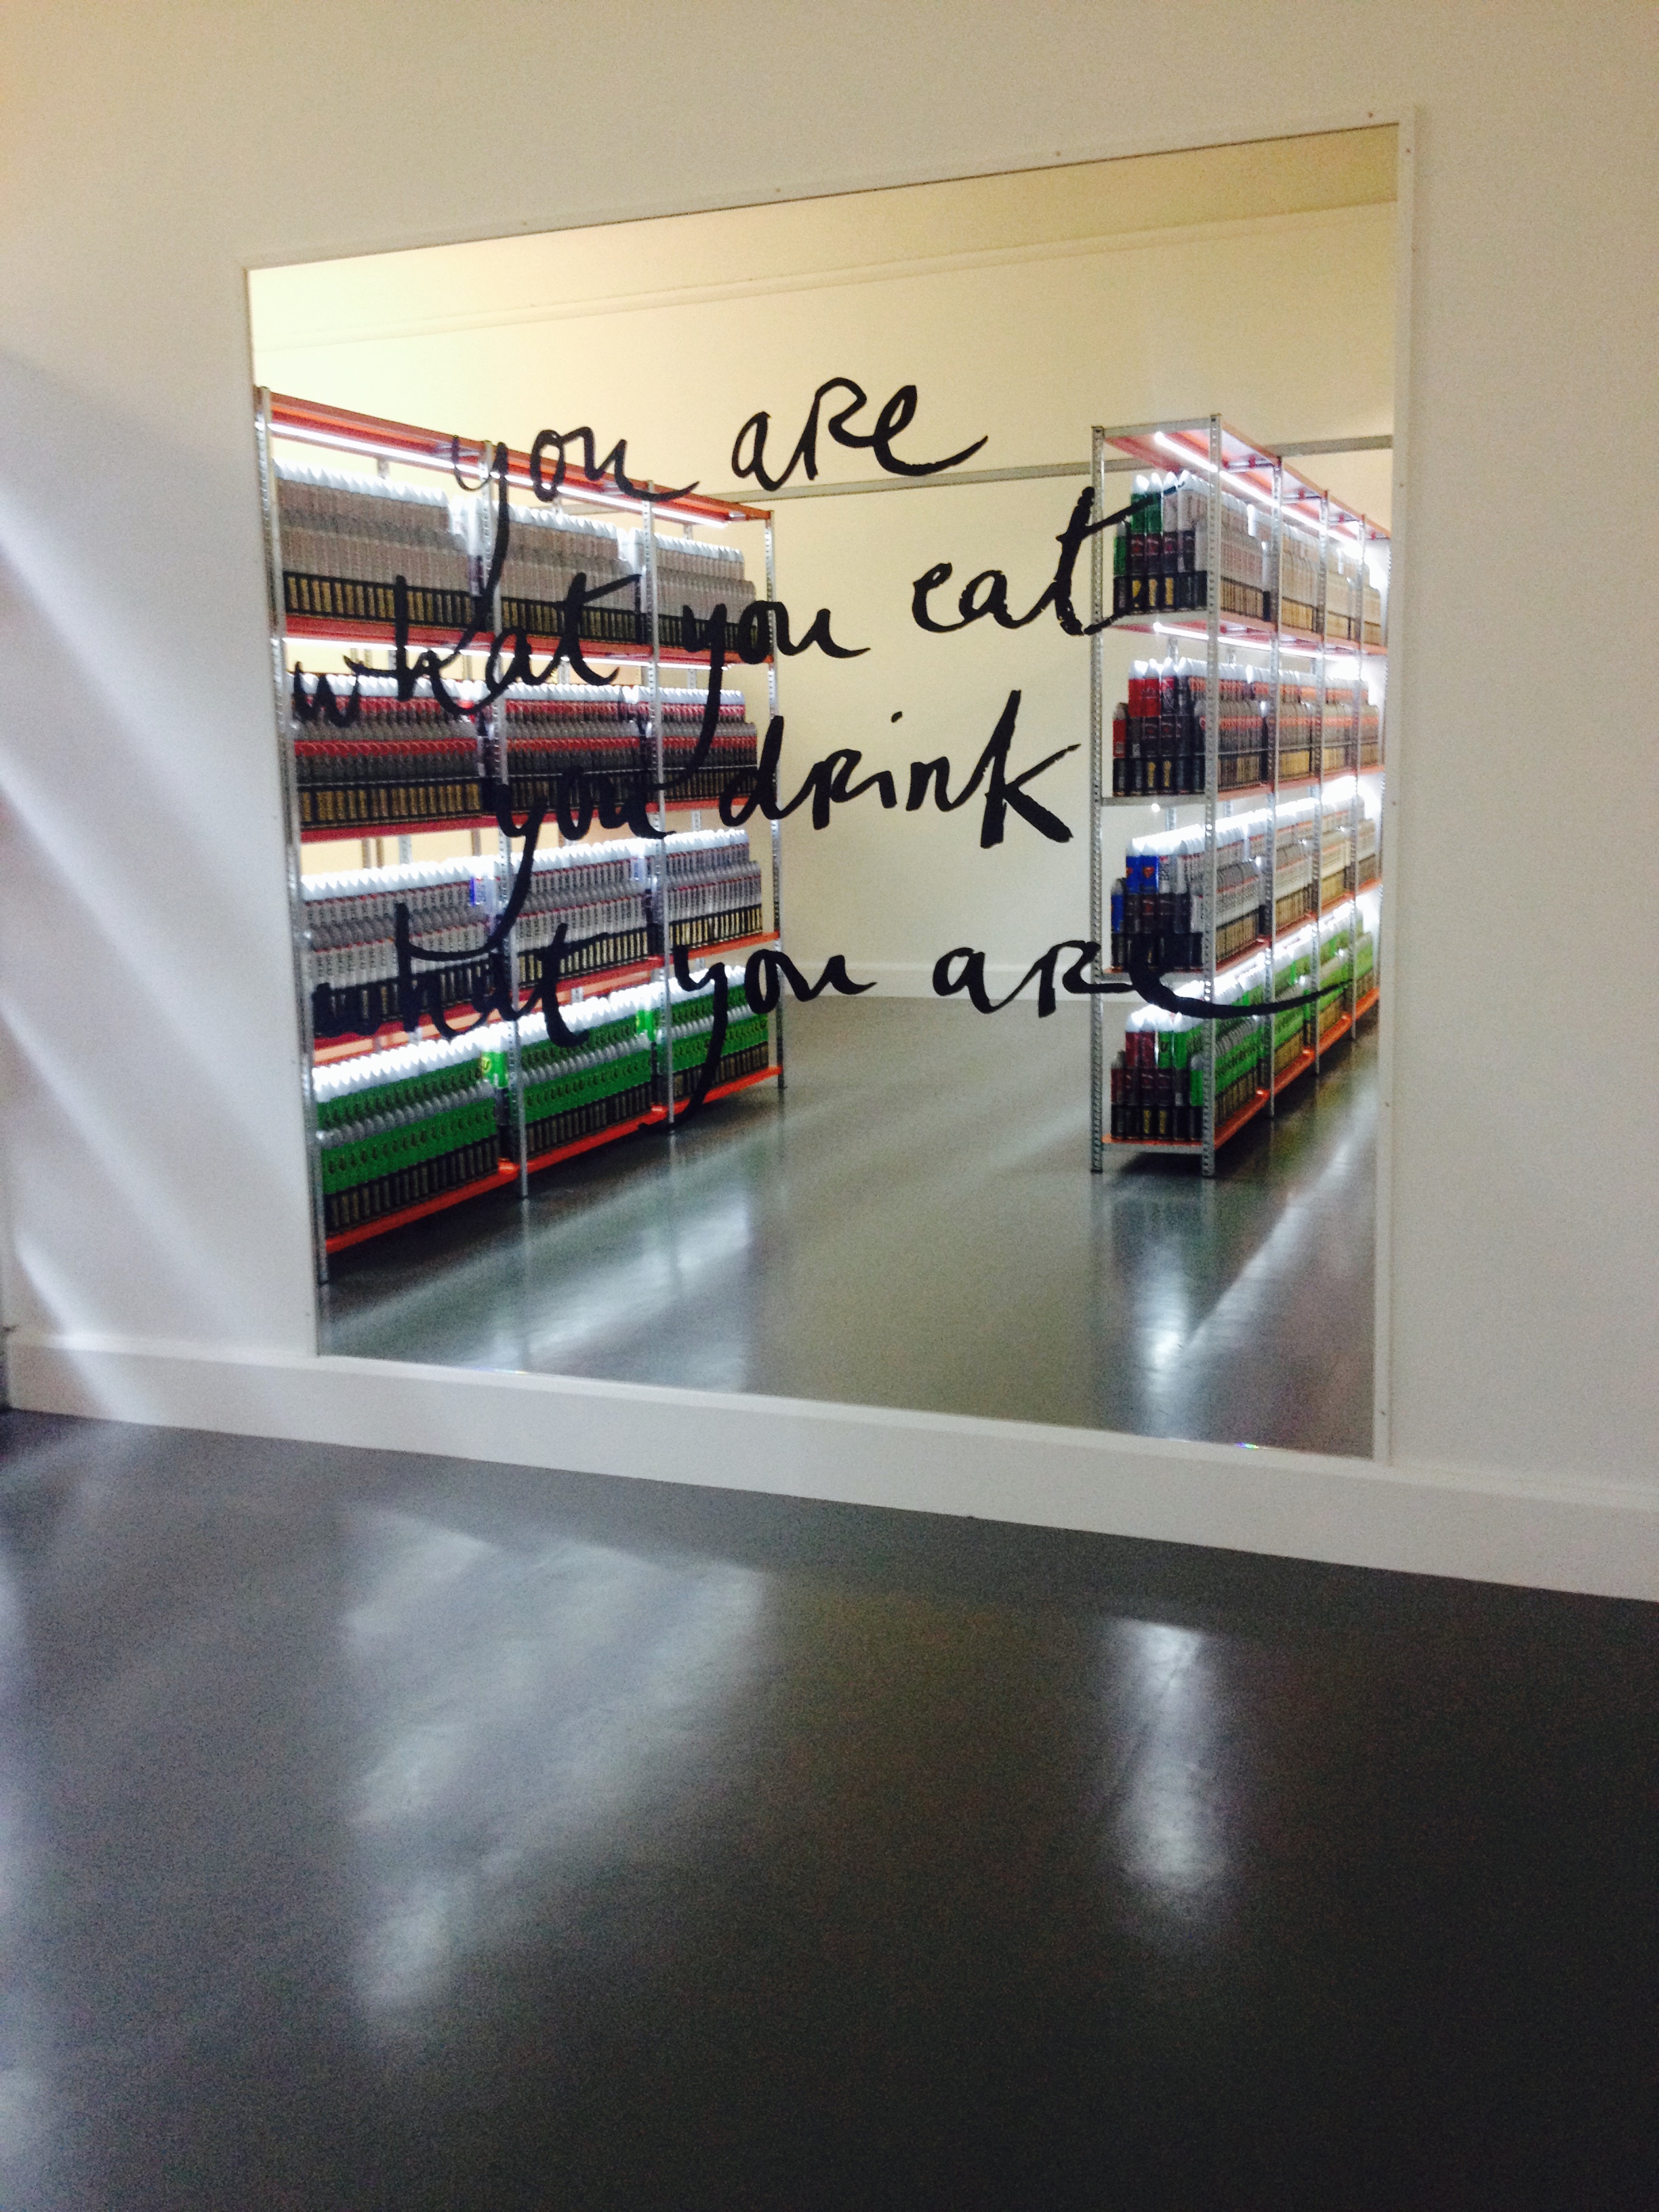 you are
what you eat
you drink
what you are